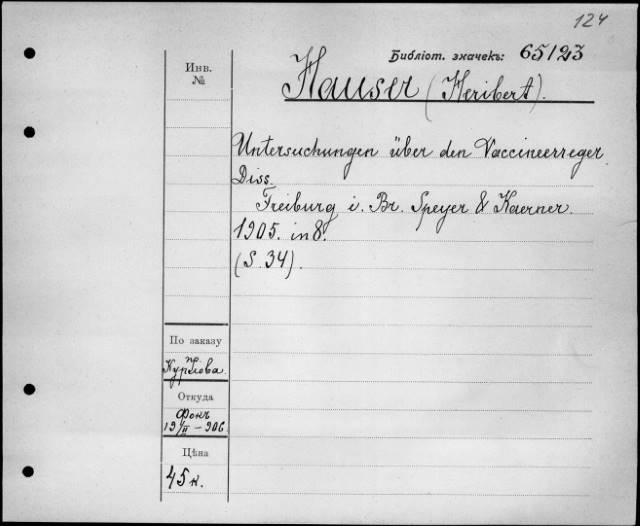 124
Библіот. значекъ: 65/123
Инв.
№
Hauser (Heribert).
Untersuchungen über den Vaccineerreger.
Diss.
Freiburg i. Br. Speyer & Kaerner.
1905. in 8.
(S. 34).
По заказу
пр.
Курлова.
Откуда
Фокъ
19/II – 906.
Цѣна
45 к.